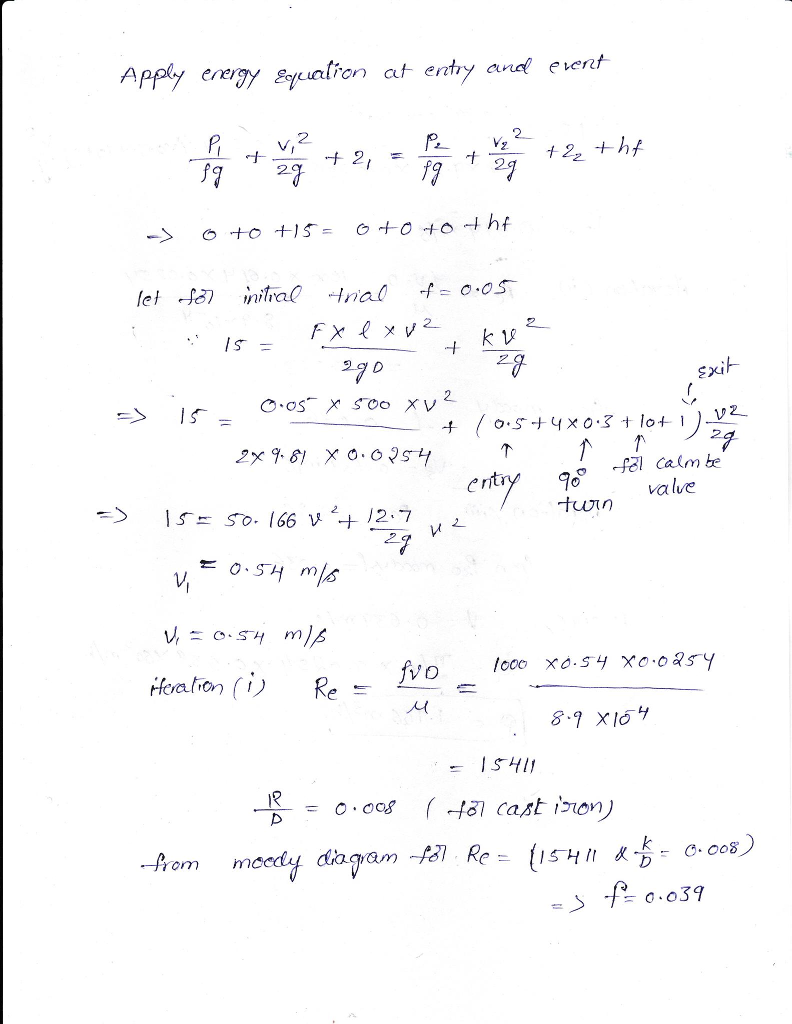 Apply energy equation at entry and event
P₁/ρg + v₁²/2g + z₁ = P₂/ρg + v₂²/2g + z₂ + hf
=> 0 + 0 + 15 = 0 + 0 + 0 + hf
let for initial trial f = 0.05
∵ 15 = F x l x v²/2gD + k v²/2g
=> 15 = 0.05 x 500 x v²/2x9.81 x 0.0254 + (0.5 + 4x0.3 + 10 + 1) v²/2g
exit
entry 90° turn for calmbe valve
=> 15 = 50.166 v² + 12.7/2g v²
v₁ = 0.54 m/s
v₁ = 0.54 m/s
iteration (i) Re = ρvD/μ = 1000 x 0.54 x 0.0254/8.9 x 10⁻⁴
= 15411
k/D = 0.008 (for cast iron)
from moody diagram for Re = (15411 & k/D = 0.008)
=> f = 0.039